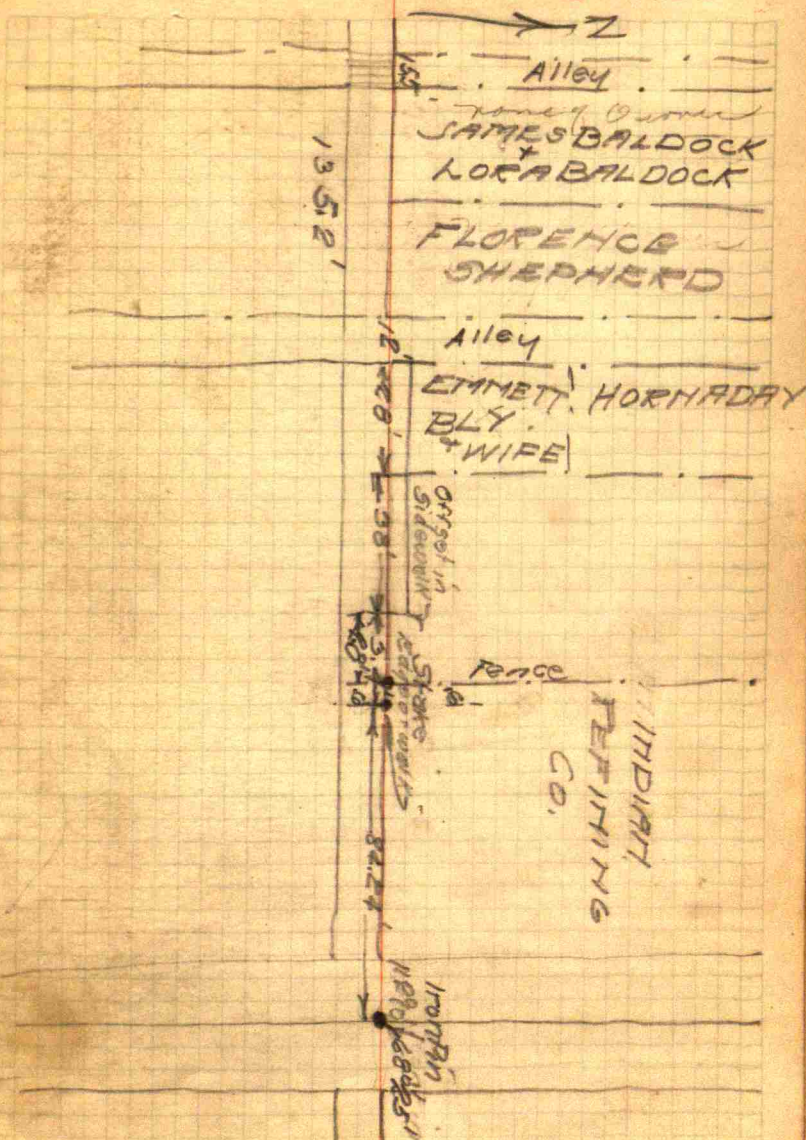 N
Alley
15.5
JAMES BALDOCK
+
LORA BALDOCK
135.2'
FLORENCE
SHEPHERD
Alley
12'
EMMETT HORNADAY
BLY
+ WIFE
28'
38'
Offset in
Sidewalk
3.
Stake
Edge of walk
Fence
INDIAN
REFINING
CO.
82.24
Iron Pin